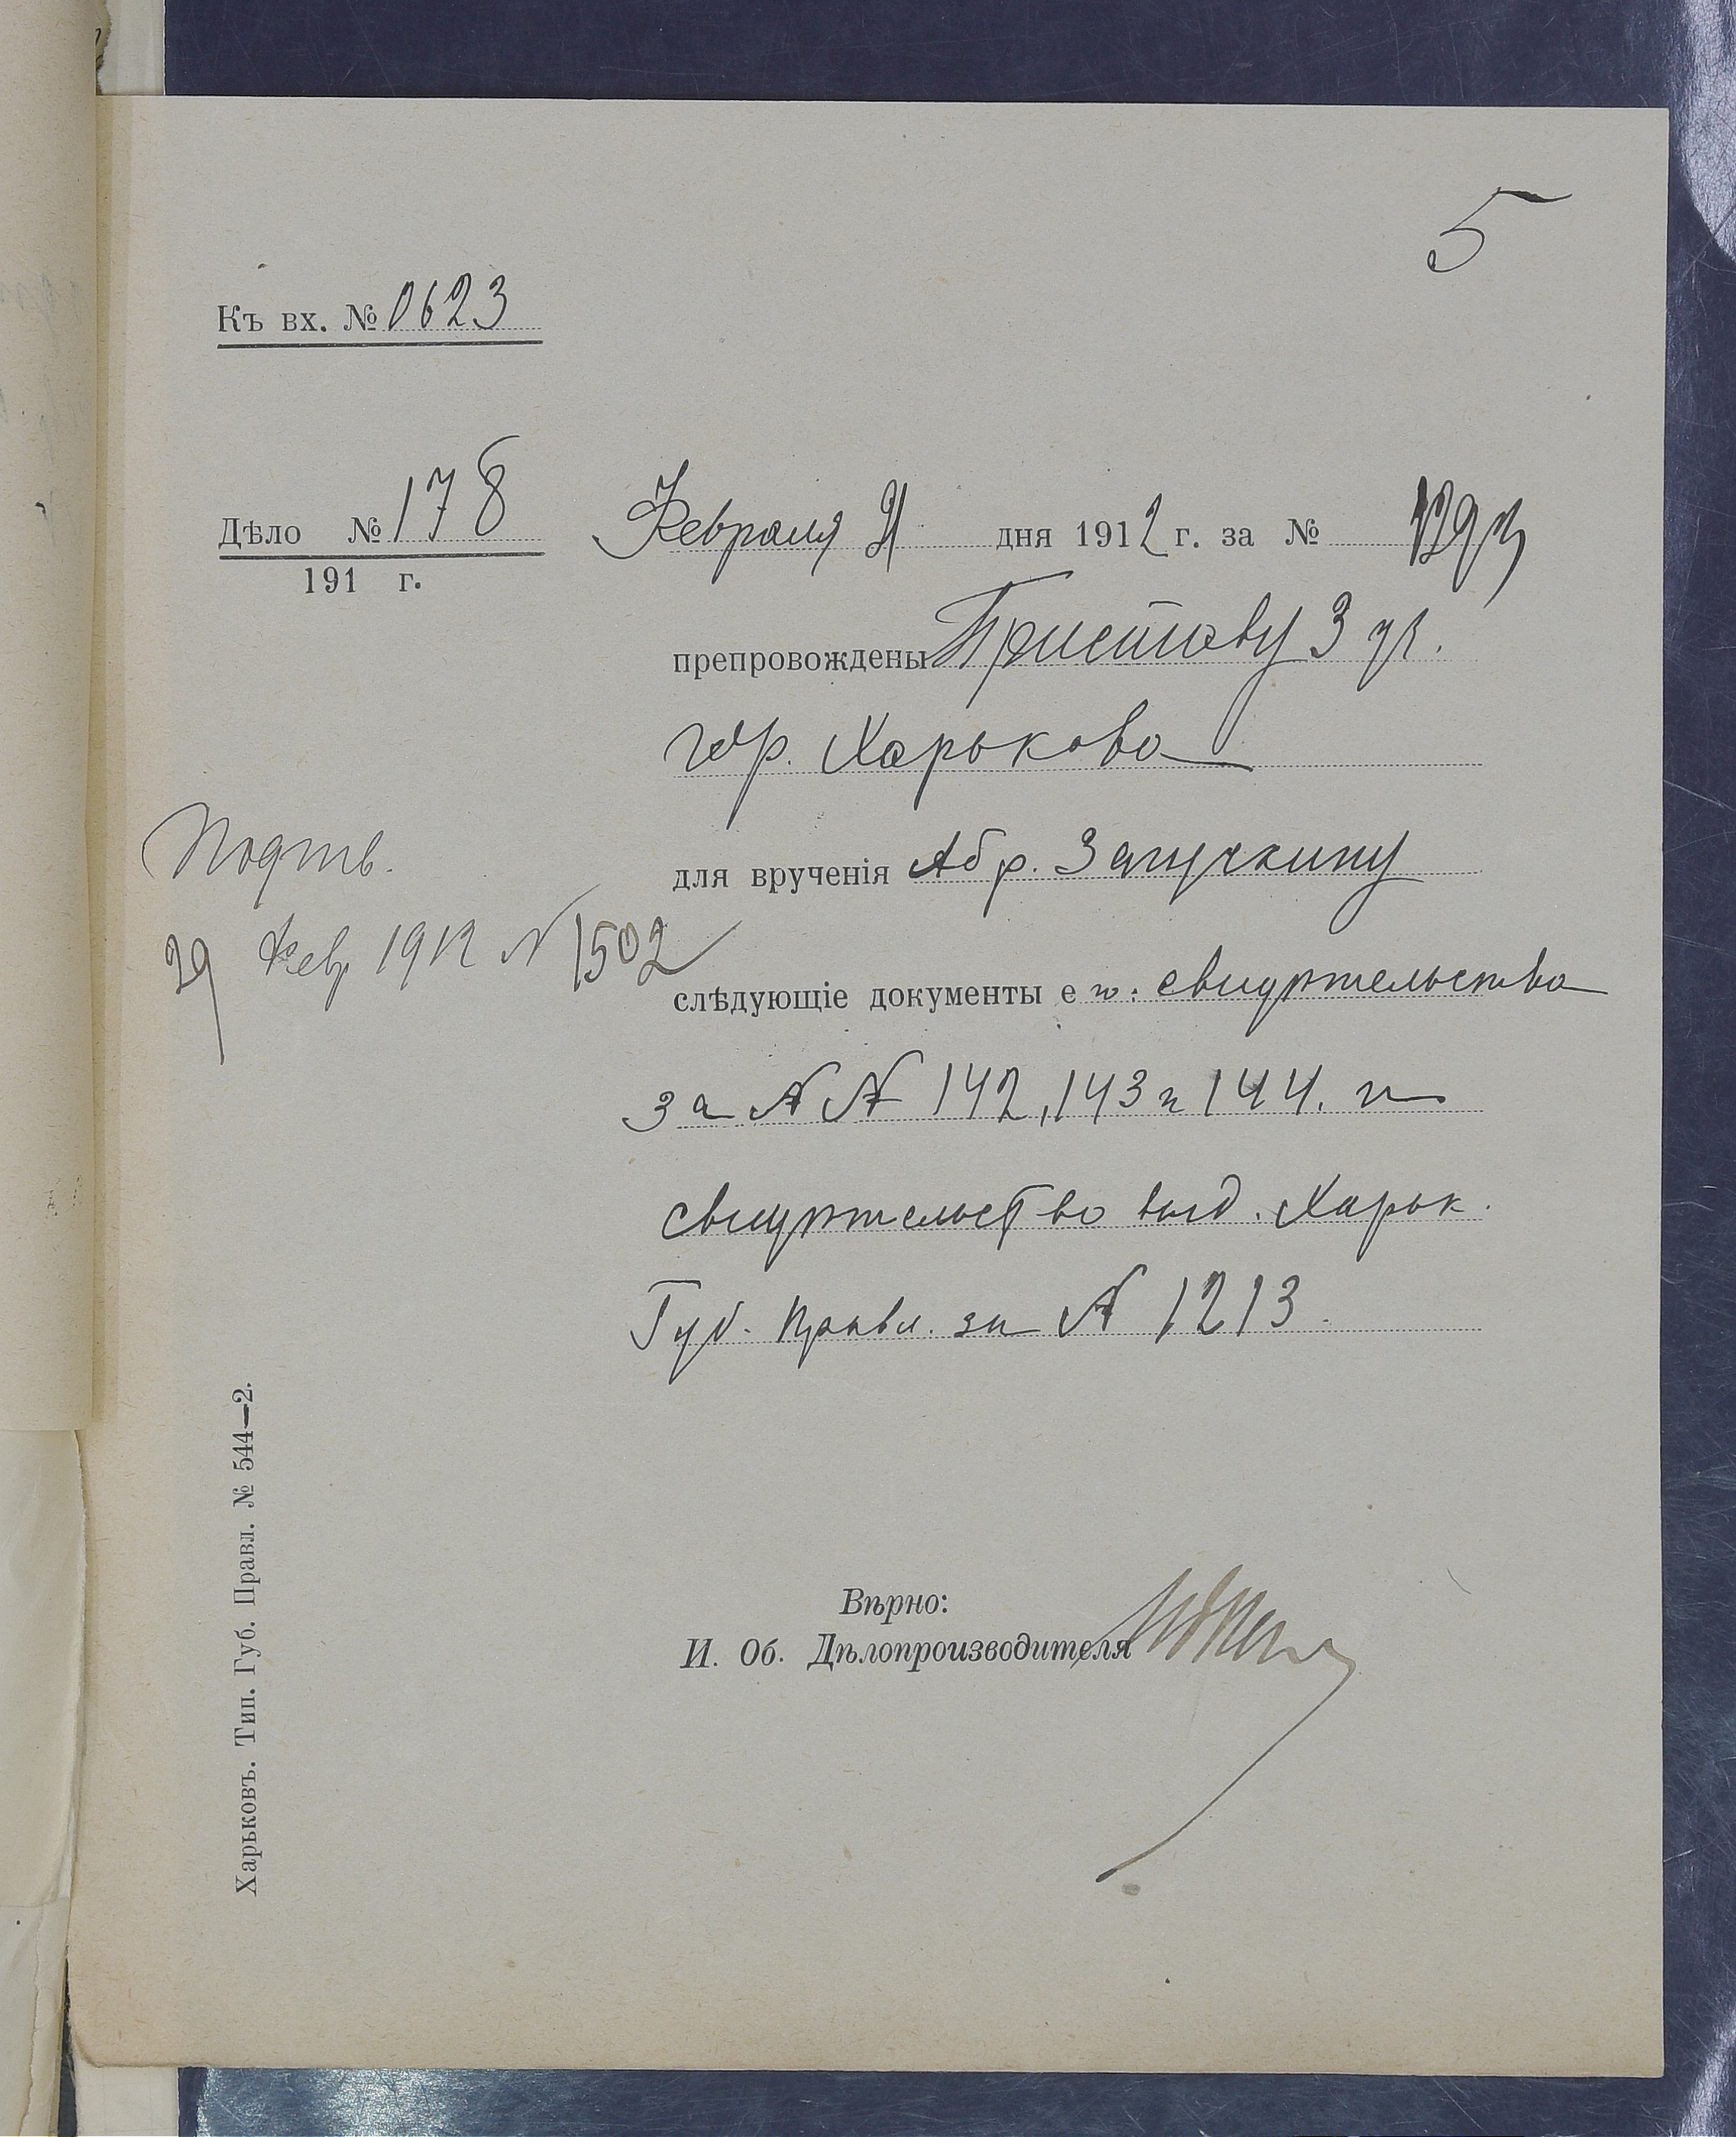 5
Къ вх. № 0623
Дѣло № 178
191 г.
Февраля 21 дня 1912 г. за № 1293
препровождены Приставу 3 уч.
гор. Харькова
Подтв.
29 Февр 1912 № 1502
для врученія Абр. Запускину
слѣдующіе документы его: свидѣтельства
за №№ 142, 143 и 144. и
свидѣтельство выд. Харьк.
Губ. Правл. за № 1213.
Вѣрно:
И. Об. Дѣлопроизводителя
Харьковъ. Тип. Губ. Правл. № 544—2.